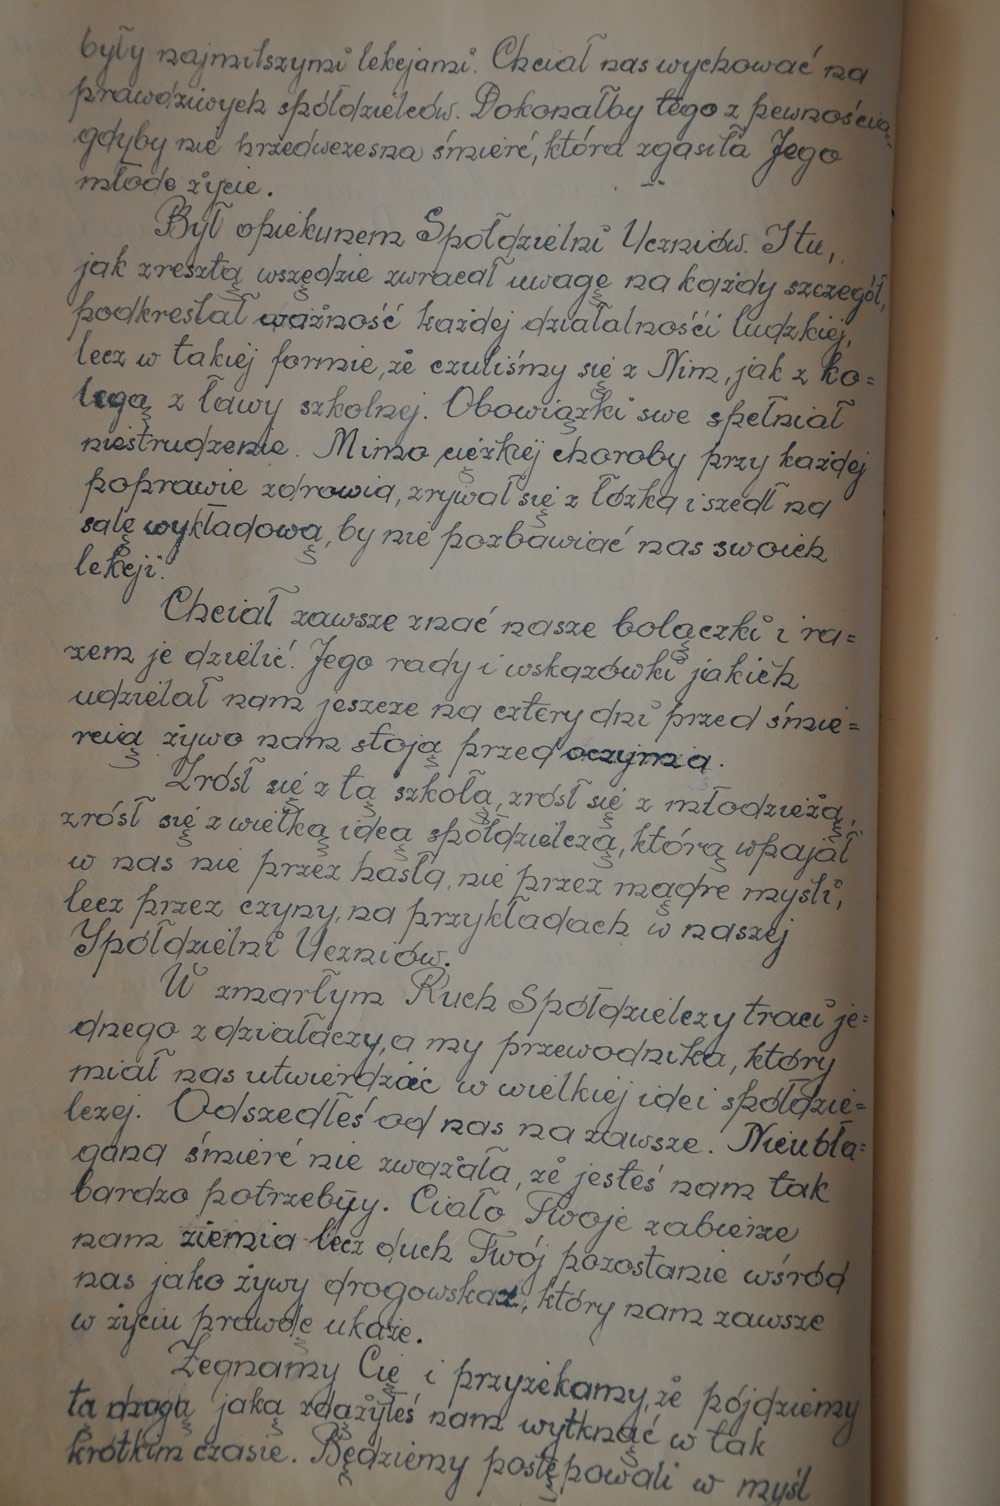 były najmilszymi lekcjami. Chciał nas wychować na
prawdziwych spółdzielców. Dokonałby tego z pewnością,
gdyby nie przedwczesna śmierć, która zgasiła Jego
młode życie.
Był opiekunem Spółdzielni Uczniów. I tu,
jak zresztą wszędzie zwracał uwagę na każdy szczegół,
podkreślał ważność każdej działalnośći ludzkiej,
lecz w takiej formie, że czuliśmy się z Nim, jak z ko=
legą z ławy szkolnej. Obowiązki swe spełniał
niestrudzenie. Mimo ciężkiej choroby przy każdej
poprawie zdrowia, zrywał się z łóżka i szedł na
salę wykładową, by nie pozbawiać nas swoich
lekcji.
Chciał zawsze znać nasze bolączki i ra=
zem je dzielić. Jego rady i wskazówki jakich
udzielał nam jeszcze na cztery dni przed śmie=
rcią żywo nam stoją przed oczyma.
Zrósł się z tą szkołą, zrósł się z młodzieżą,
zrósł się z wielką ideą spółdzielczą, którą wpajał
w nas nie przez hasła, nie przez mądre myśli,
lecz przez czyny, na przykładach w naszej
Spółdzielni Uczniów.
W zmarłym Ruch Spółdzielczy traci je=
dnego z działaczy, a my przewodnika, który
miał nas utwierdzać w wielkiej idei spółdzie=
lczej. Odszedłeś od nas na zawsze. Nieubła=
gana śmierć nie zważała, że jesteś nam tak
bardzo potrzebny. Ciało Twoje zabierze
nam ziemia lecz duch Twój pozostanie wśród
nas jako żywy drogowskaz, który nam zawsze
w życiu prawdę ukaże.
Żegnamy Cię i przyrzekamy, że pójdziemy
tą drogą jaką zdążyłeś nam wytknąć w tak
krótkim czasie. Będziemy postępowali w myśl